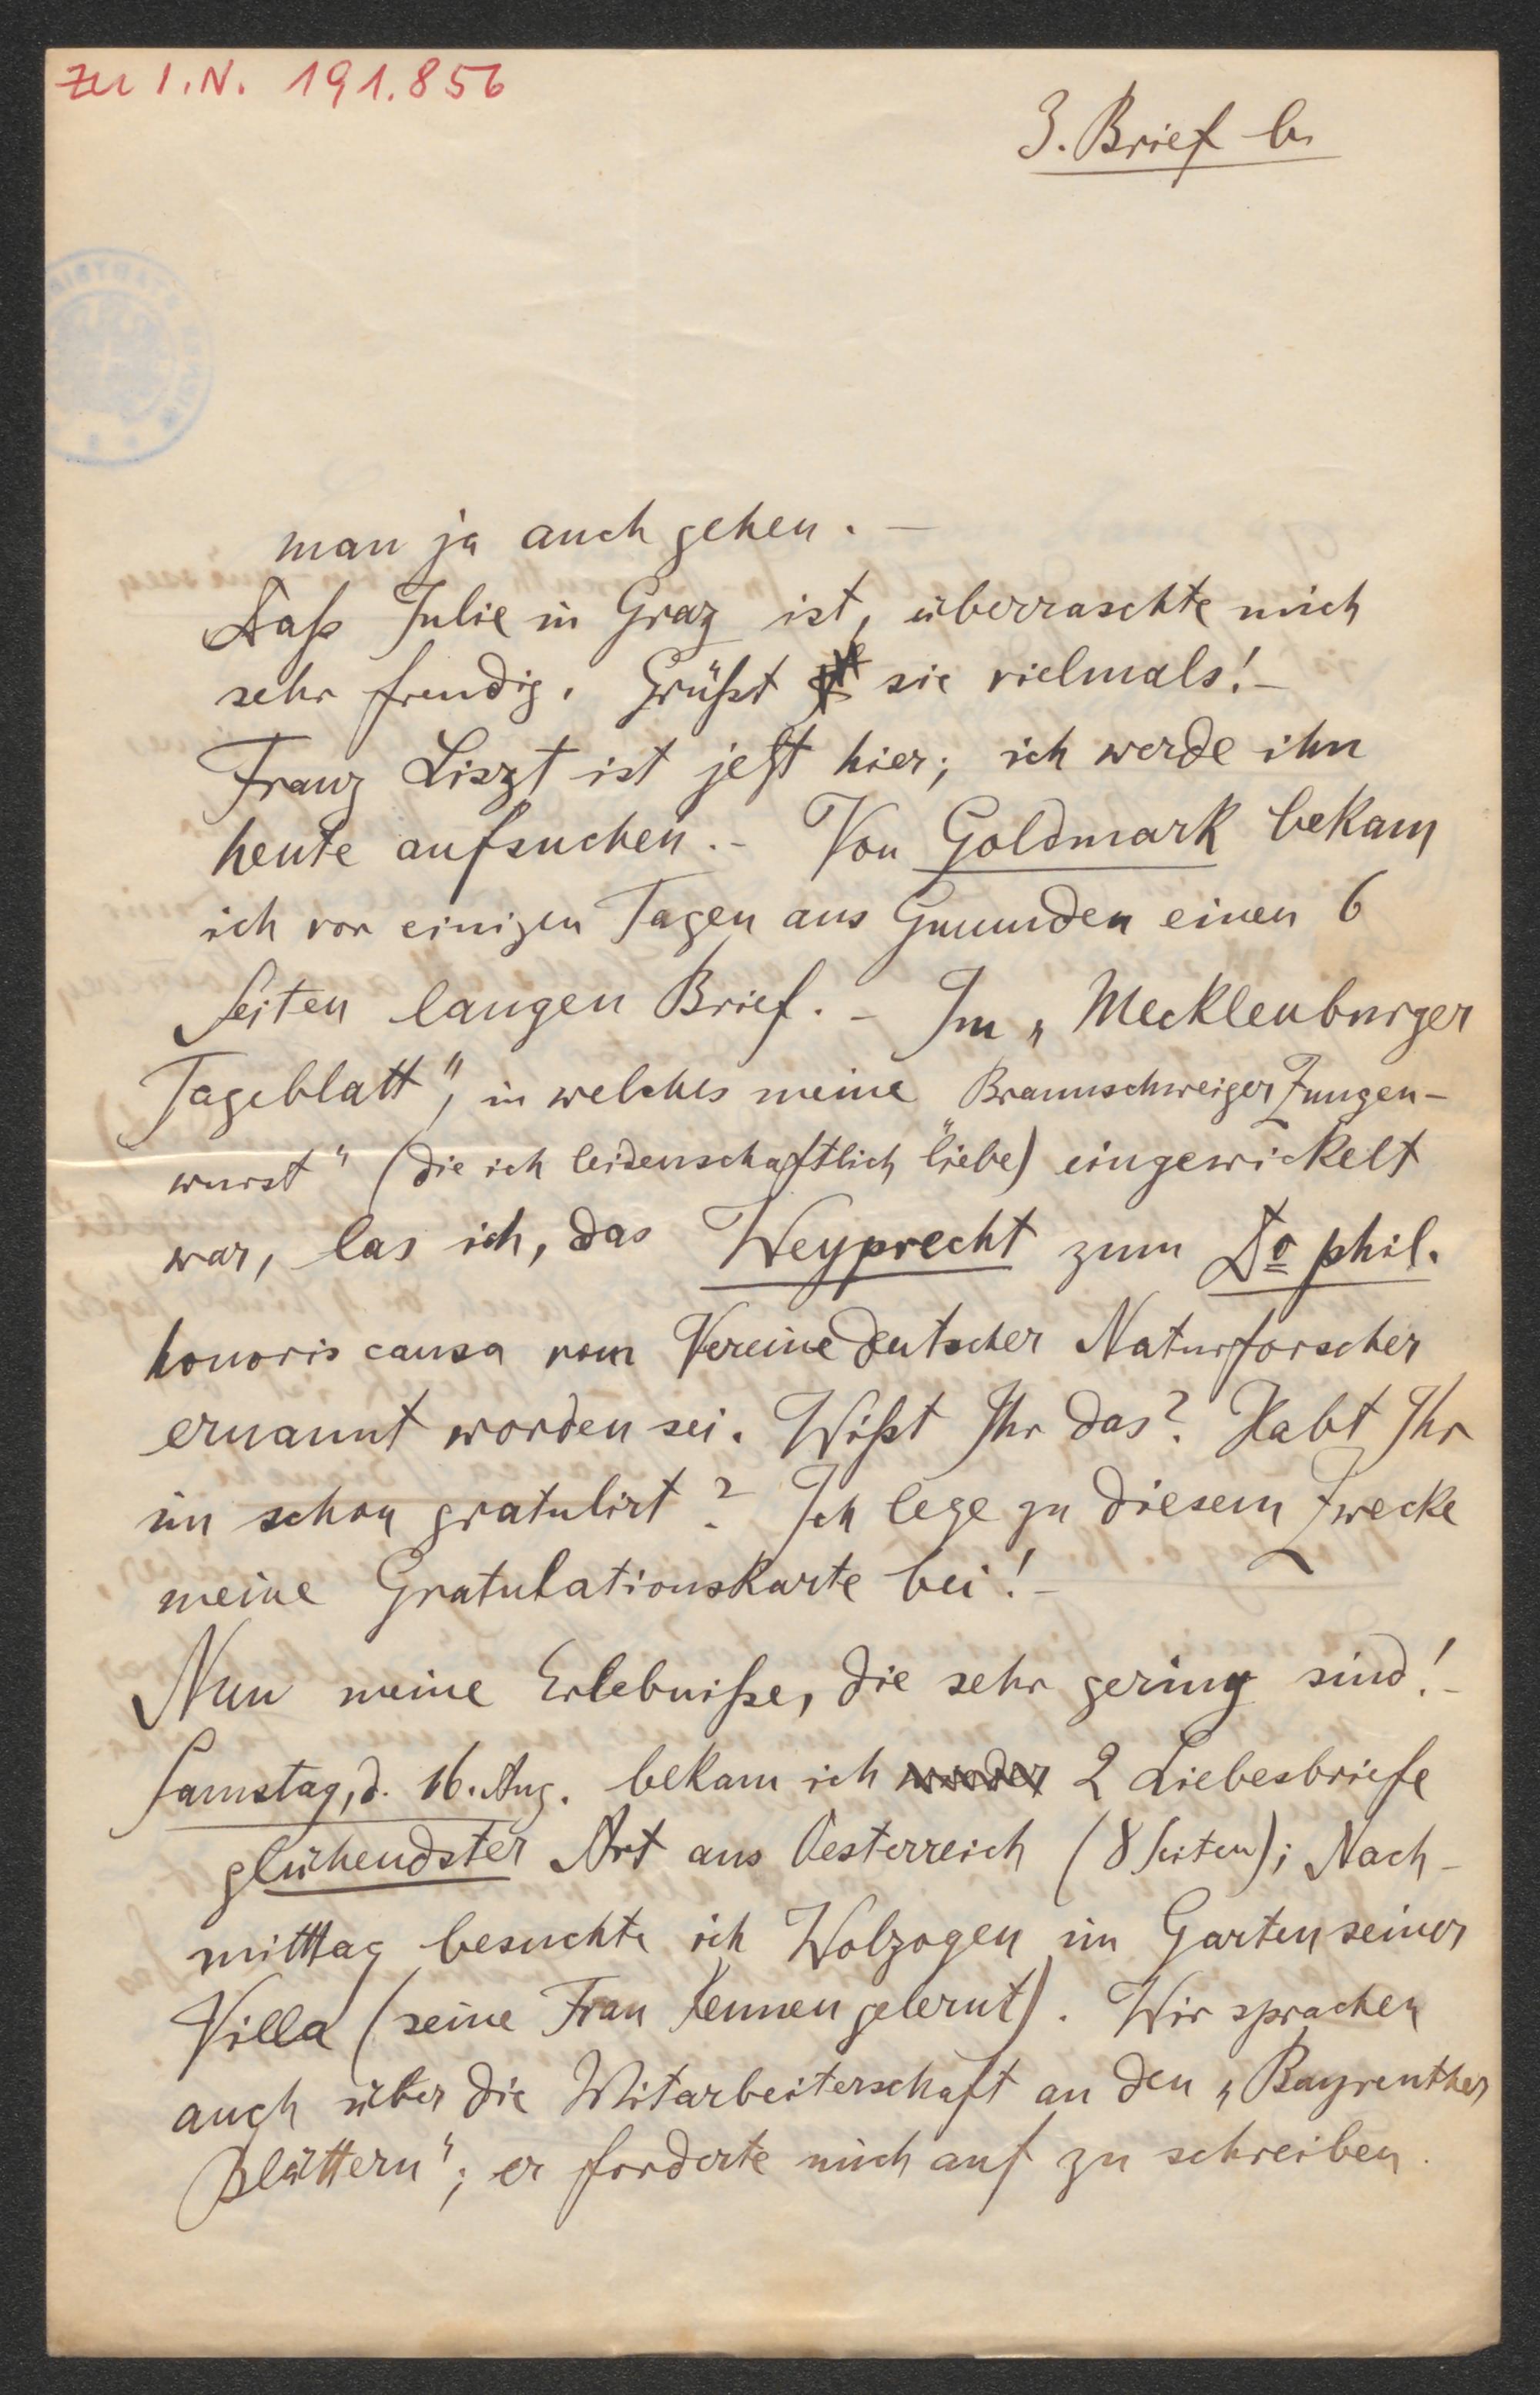 Zu I.N. 191.856
3. Brief b.
man ja auch gehen. –
Daß Julie in Graz ist, überraschte mich
sehr freudig. Grüßt sie vielmals! –
Franz Liszt ist jetzt hier; ich werde ihn
heute aufsuchen. – Von Goldmark bekam
ich vor einigen Tagen aus Gmunden einen 6
Seiten langen Brief. – Im „Mecklenburger
Tageblatt", in welches meine „Braunschweiger Zungen-
wurst" (die ich leidenschaftlich liebe) eingewickelt
war, las ich, das Weyprecht zum Do phil.
honoris causa vom Vereine deutscher Naturforscher
ernannt worden sei. Wißt Ihr das? Habt Ihr
im schon gratulirt? Ich lege zu diesem Zwecke
meine Gratulationskarte bei! –
Nun meine Erlebniße, die sehr gering sind! –
Samstag, d. 16. Aug. bekam ich wieder 2 Liebesbriefe
glühendster Art aus Oesterreich (8 Seiten); Nach-
mitttag besuchte ich Wolzogen im Garten seiner
Villa (seine Frau kennen gelernt). Wir sprachen
auch über die Mitarbeiterschaft an den „Bayreuther
Blättern"; er forderte mich auf zu schreiben.